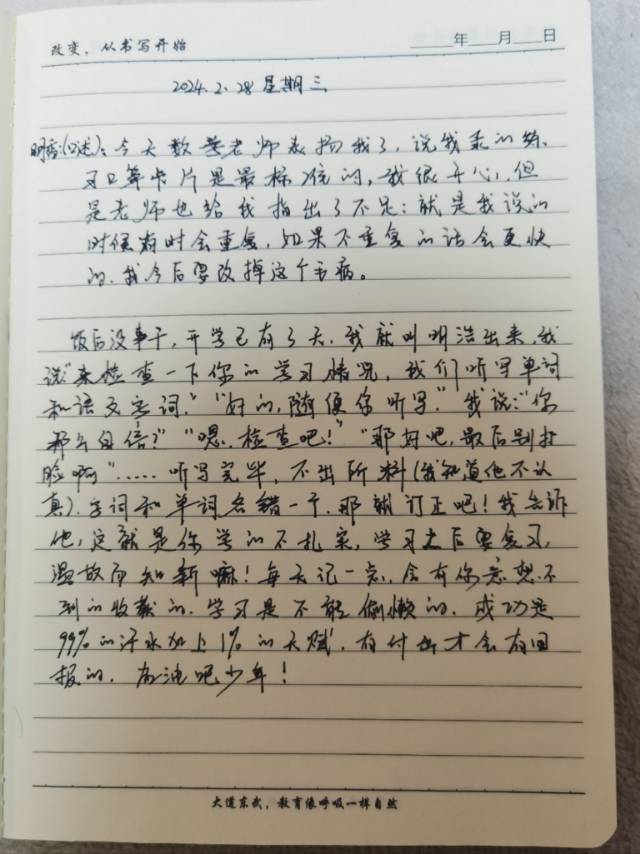 改变，从书写开始
____年___月___日
2024.2.28 星期三
明浩(口述)：今天数学老师表扬我了，说我乘的练
习口算卡片是最标准的，我很开心，但
是老师也给我指出了不足：就是我说的
时候有时会重复，如果不重复的话会更快
的，我今后要改掉这个毛病。
饭后没事干，开学已有3天，我就叫明浩出来，我
说“来检查一下你的学习情况，我们听写单词
和语文字词。”“好的，随便你听写。”我说：“你
那么自信？”“嗯、检查吧！”“那好吧，最后别打
脸啊”……听写完毕，不出所料(我知道他不认
真)，字词和单词各错一个，那就订正吧！我告诉
他，这就是你学的不扎实，学习之后要复习，
温故而知新嘛！每天记一点，会有你意想不
到的收获的，学习是不能偷懒的，成功是
99%的汗水加上1%的天赋，有付出才会有回
报的，加油吧少年！
大道东武，教育像呼吸一样自然